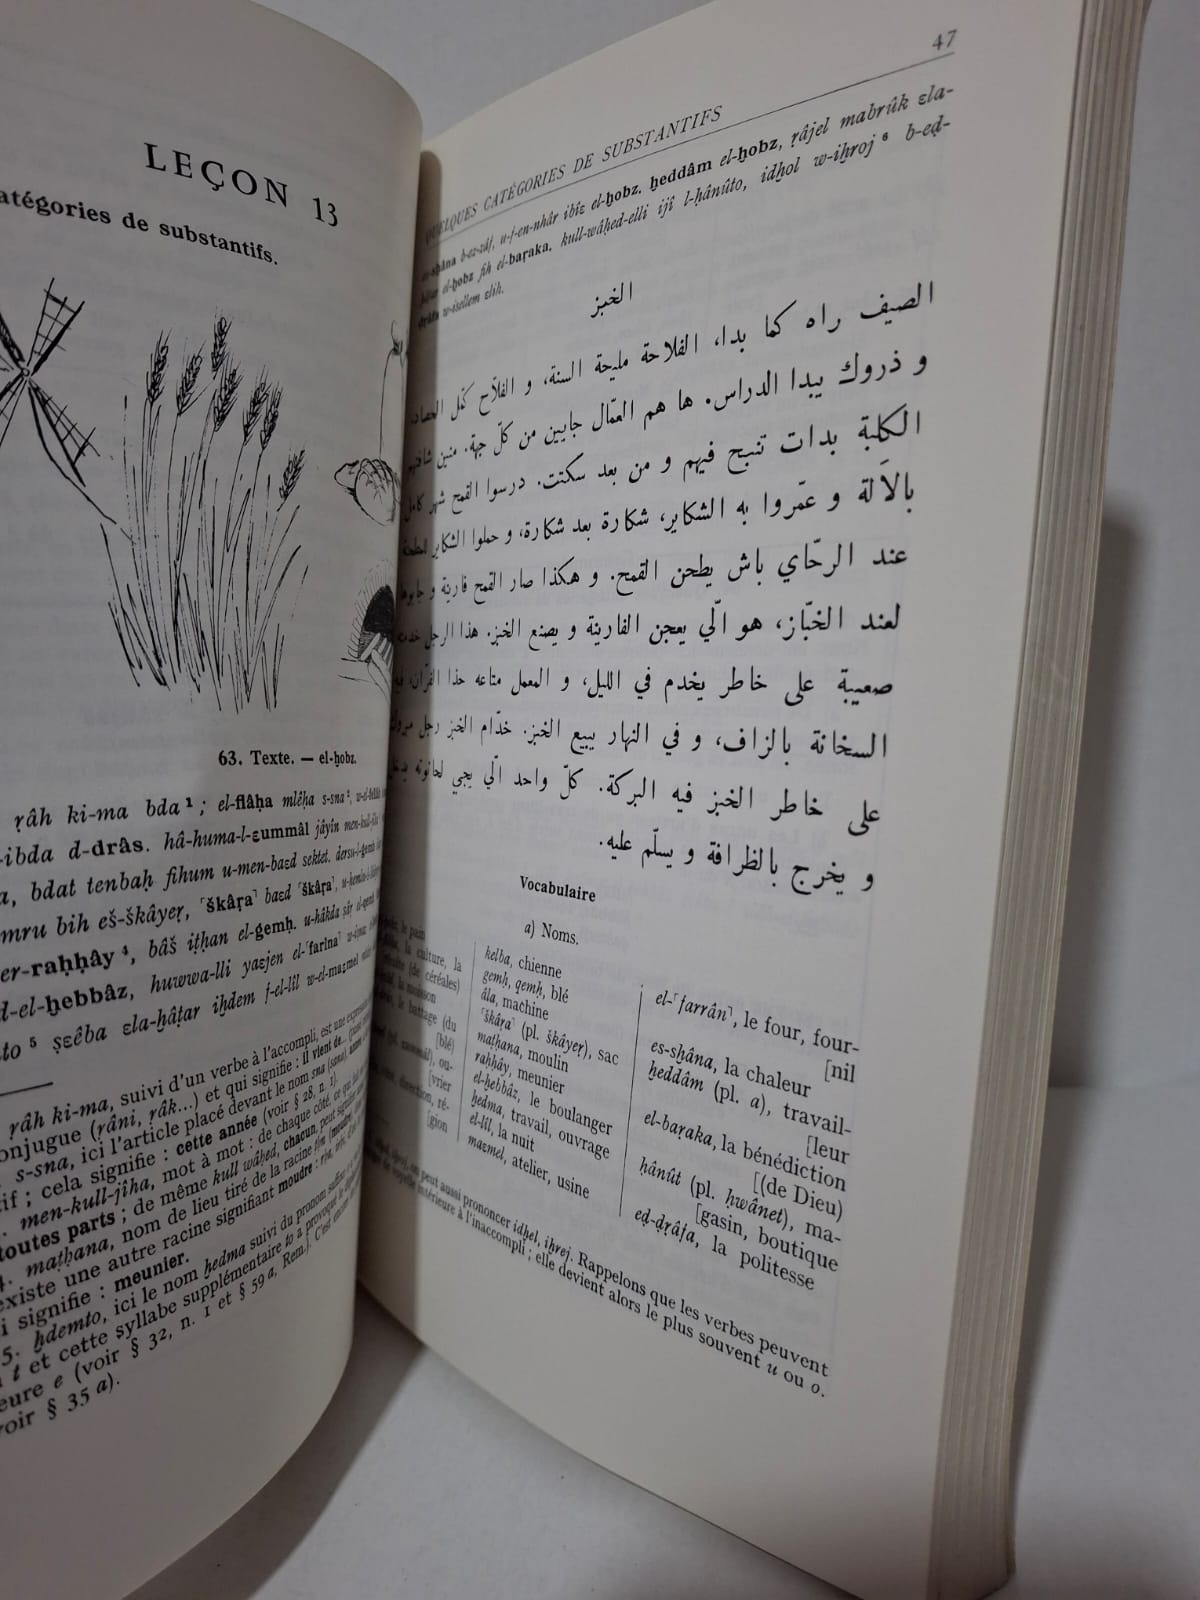 LEÇON 13
atégories de substantifs.
63. Texte. — el-ḫobz.
ṛâh ki-ma bda¹ ; el-flâḥa mlêḥa s-sna²,
-ibda d-drâs. hâ-huma-l-ɛummâl jâyîn men-kull-jîha
a, bdat tenbaḥ fihum u-men-baɛd sektet. dersu-l-gemḥ
mru bih eš-škâyeṛ, ⌜škâṛa⌝ baɛd ⌜škâṛa⌝,
er-raḥḥây⁴, bâš iṭḥan el-gemḥ. u-hâkda ṣâṛ el-gemḥ
d-el-ḫebbâz, huwwa-lli yaɛjen el-⌜farîna⌝
to⁵ ṣɛêba ɛla-ḫâṭar iḫdem f-el-lîl w-el-maɛmel
ṛâh ki-ma, suivi d'un verbe à l'accompli, est une expression
onjugue (ṛâni, ṛâk...) et qui signifie : il vient de...
s-sna, ici l'article placé devant le nom sna
if ; cela signifie : cette année (voir § 28, n. 1).
men-kull-jîha, mot à mot : de chaque côté, ce qui
toutes parts ; de même kull wâḥed, chacun, peut
4. maṭḥana, nom de lieu tiré de la racine ṭḥn (moudre)
existe une autre racine signifiant moudre :
i signifie : meunier.
5. ḫdemto, ici le nom ḫedma suivi du pronom suffixe
t et cette syllabe supplémentaire to a provoqué le
eure e (voir § 32, n. 1 et § 59 a, Rem.). C'est
voir § 35 a).
47
QUELQUES CATÉGORIES DE SUBSTANTIFS
es-sḫâna b-ez-zâf, u-f-en-nhâr ibîɛ el-ḫobz. ḫeddâm el-ḫobz, ṛâjel mabrûk ɛla-
ḫâṭar el-ḫobz fîh el-baṛaka. kull-wâḥed-elli ijî l-ḥânûto, idḫol w-iḫroj⁶ b-eḍ-
ḍrâfa w-isellem ɛlîh.
الخبز
الصيف راه كما بدا، الفلاحة مليحة السنة، و الفلاّح كمّل الحصاد.
و ذروك يبدا الدراس. ها هم العمّال جايين من كلّ جهة. منين شافتهم
الكلبة بدات تنبح فيهم و من بعد سكتت. درسوا القمح شهر كامل
بالآلة و عمّروا به الشكاير، شكارة بعد شكارة، و حملوا الشكاير للمطحنة
عند الرحّاي باش يطحن القمح. و هكذا صار القمح فارينة و جابوها
لعند الخبّاز، هو الّي يعجن الفارينة و يصنع الخبز. هذا الرجل خدمته
صعيبة على خاطر يخدم في الليل، و المعمل متاعه حذا الفرّان، فيه
السخانة بالزاف، و في النهار يبيع الخبز. خدّام الخبز رجل مبروك
على خاطر الخبز فيه البركة. كلّ واحد الّي يجي لحانوته يدخل
و يخرج بالظرافة و يسلّم عليه.
Vocabulaire
a) Noms.
le pain
la culture, la
(de céréales)
la moisson
le battage (du
[blé)
ou-
[vrier
direction, ré-
[gion
kelba, chienne
gemḥ, qemḥ, blé
âla, machine
⌜škâṛa⌝ (pl. škâyeṛ), sac
maṭḥana, moulin
raḥḥây, meunier
el-ḫebbâz, le boulanger
ḫedma, travail, ouvrage
el-lîl, la nuit
maɛmel, atelier, usine
el-⌜farrân⌝, le four, four-
[nil
es-sḫâna, la chaleur
ḫeddâm (pl. a), travail-
[leur
el-baṛaka, la bénédiction
[(de Dieu)
ḥânût (pl. ḥwânet), ma-
[gasin, boutique
eḍ-ḍrâfa, la politesse
on peut aussi prononcer idḫel, iḫrej. Rappelons que les verbes peuvent
voyelle intérieure à l'inaccompli ; elle devient alors le plus souvent u ou o.